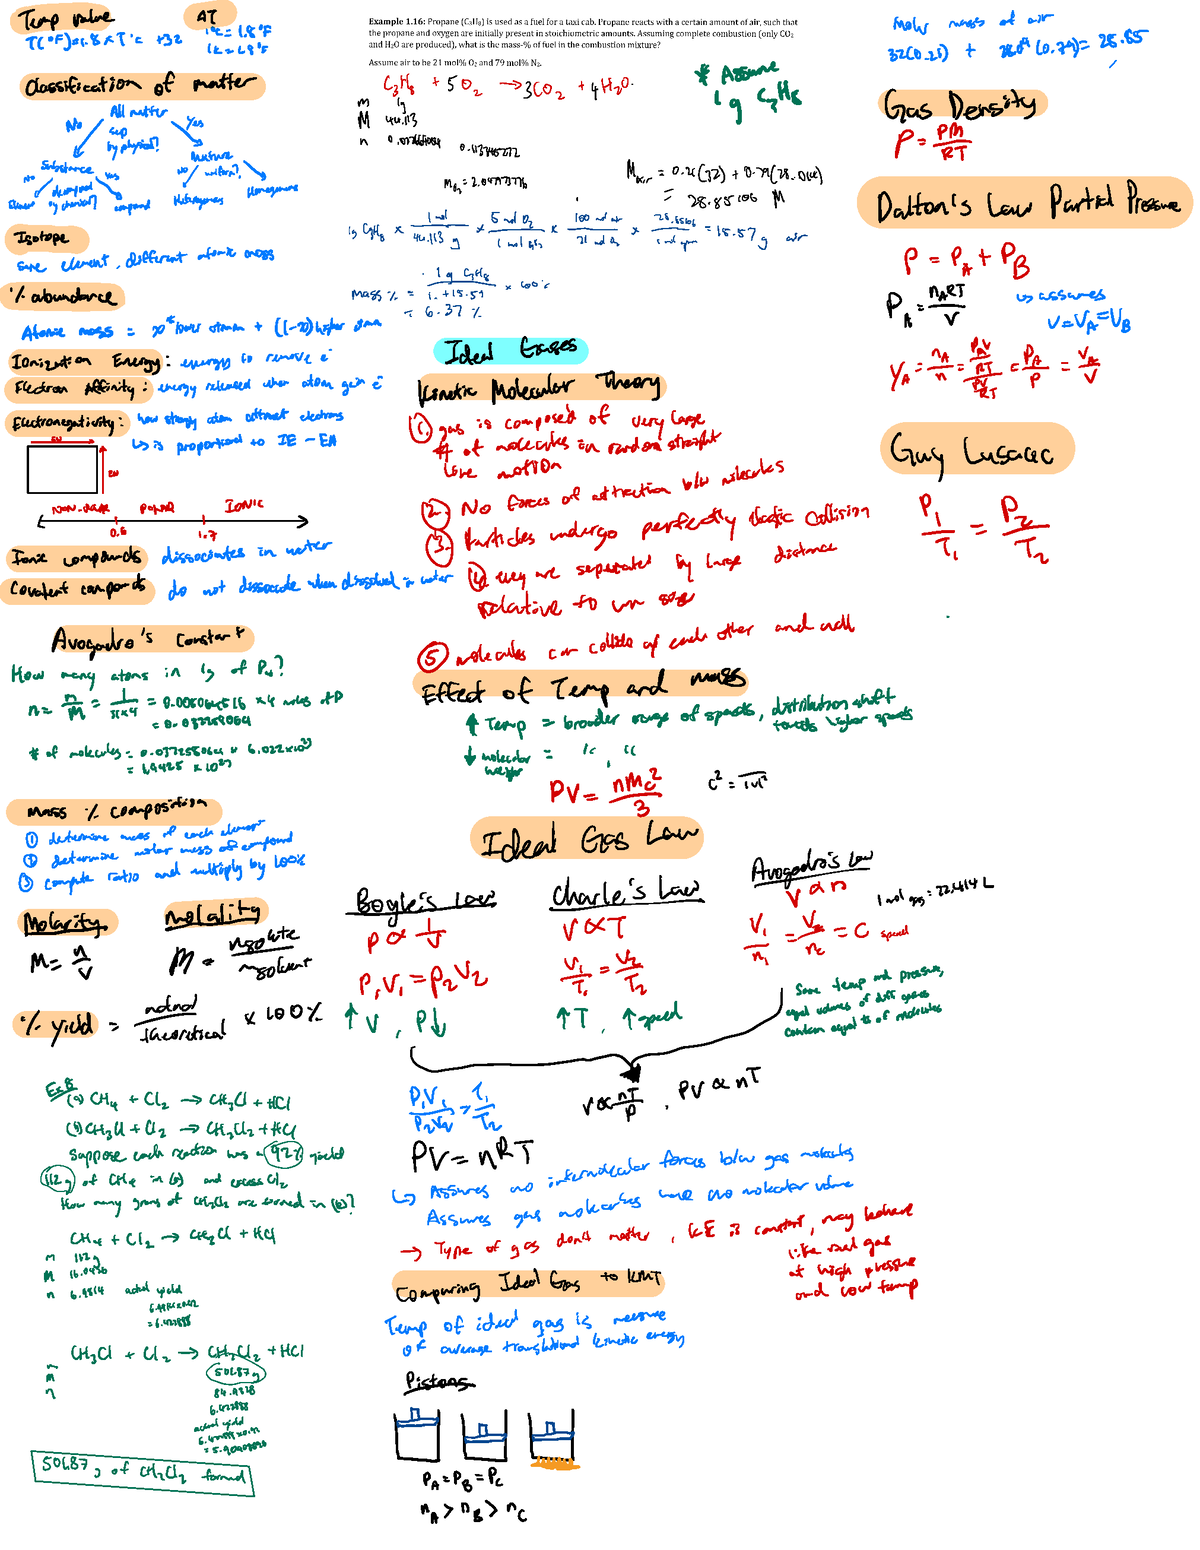 Temp value
T(°F)=1.8 x T°c +32
ΔT
1°c = 1.8°F
1k = 1.8°F
Classification of matter
All matter
No
sep by physical?
Yes
Substance
Mixture
No
decomposed by chemical?
Yes
No
uniform?
Element
compound
Heterogeneous
Homogeneous
Isotope
same element, different atomic mass
% abundance
Atomic mass =
Ionization Energy: energy to remove e⁻
Electron Affinity: energy released when atom gain e⁻
Electronegativity: how strongly atom attract electrons
↳ is proportional to IE - EA
EN
EN
NON-POLAR POLAR IONIC
0.5 1.7
Ionic compounds dissociates in water
Covalent compounds do not dissociate when dissolved in water
Avogadro's Constant
How many atoms in 1g of P₄?
n = m/M = 1/31x4 = 0.008064516 x4 moles of P
= 0.032258064
# of molecules = 0.032258064 x 6.022x10²³
Mass % composition
① determine mass of each element
② determine molar mass of compound
③ compute ratio and multiply by 100%
Molarity
M = n/V
molality
m = nsolute/msolvent
% yield = actual/theoretical x 100%
Ex 8
(a) CH₄ + Cl₂ → CH₃Cl + HCl
(b) CH₃Cl + Cl₂ → CH₂Cl₂ + HCl
Suppose each reaction was a 92% yield
112g of CH₄ in (a) and excess Cl₂
How many grams of CH₂Cl₂ are formed in (b)?
CH₄ + Cl₂ → CH₃Cl + HCl
m 112g
M 16.0436
n 6.9814 actual yield
CH₃Cl + Cl₂ → CH₂Cl₂ + HCl
m
M
n
501.87 g
actual yield
501.87 g of CH₂Cl₂ formed
Example 1.16: Propane (C₃H₈) is used as a fuel for a taxi cab. Propane reacts with a certain amount of air, such that
the propane and oxygen are initially present in stoichiometric amounts. Assuming complete combustion (only CO₂
and H₂O are produced), what is the mass-% of fuel in the combustion mixture?
Assume air to be 21 mol% O₂ and 79 mol% N₂.
C₃H₈ + 5O₂ → 3CO₂ + 4H₂O.
* Assume
1g C₃H₈
m 1g
M 44.113
n
Mair = 0.21(32) + 0.79(28.014)
= 28.85106 M
1g C₃H₈ x 1 mol/44.113 g x 5 mol O₂/1 mol C₃H₈ x 100 mol air/21 mol O₂ x 28.85106/1 mol air = 15.57g air
mass % = 1g C₃H₈/1.+15.57 x 100%
= 6.37 %
Ideal Gases
Kinetic Molecular Theory
①. gas is composed of very large
# of molecules in random straight
line motion
②. No forces of attraction b/w molecules
③. Particles undergo perfectly elastic collision
④ they are separated by large distance
relative to own size
⑤ molecules can collide w/ each other and wall
Effect of Temp and mass
↑ Temp = broader range of speeds, distribution shift
towards higher speeds
↓ molecular weight = " , "
PV = nMc²/3
Ideal Gas Law
Bogle's Law
P ∝ 1/V
P₁V₁ = P₂V₂
↑ V, P↓
Charle's Law
V ∝ T
V₁/T₁ = V₂/T₂
↑T, ↑speed
Avogadro's Law
V ∝ n
1 mol gas = 22.414 L
V₁/n₁ = V₂/n₂ = C
Same temp and pressure,
equal volumes of diff gases
contain equal # of molecules
P₁V₁/P₂V₂ = T₁/T₂
V ∝ nT/P, PV ∝ nT
PV = nRT
↳ Assumes no intermolecular forces b/w gas molecules
Assumes gas molecules have no molecular volume
→ Type of gas don't matter, KE is constant, may behave
like real gas
at high pressure
and low temp
Comparing Ideal Gas to KMT
Temp of ideal gas is measure
of average translational kinetic energy
Pistons
PA = PB = PC
nA > nB > nC
Molar mass of air
32(0.21) + 28.014(0.79) = 28.85
Gas Density
ρ = PM/RT
Dalton's Law Partial Pressure
P = PA + PB
PA = nART/V
↳ assumes
V = VA = VB
yA = nA/n = PAV/RT / PV/RT = PA/P = VA/V
Guy Lussac
P₁/T₁ = P₂/T₂